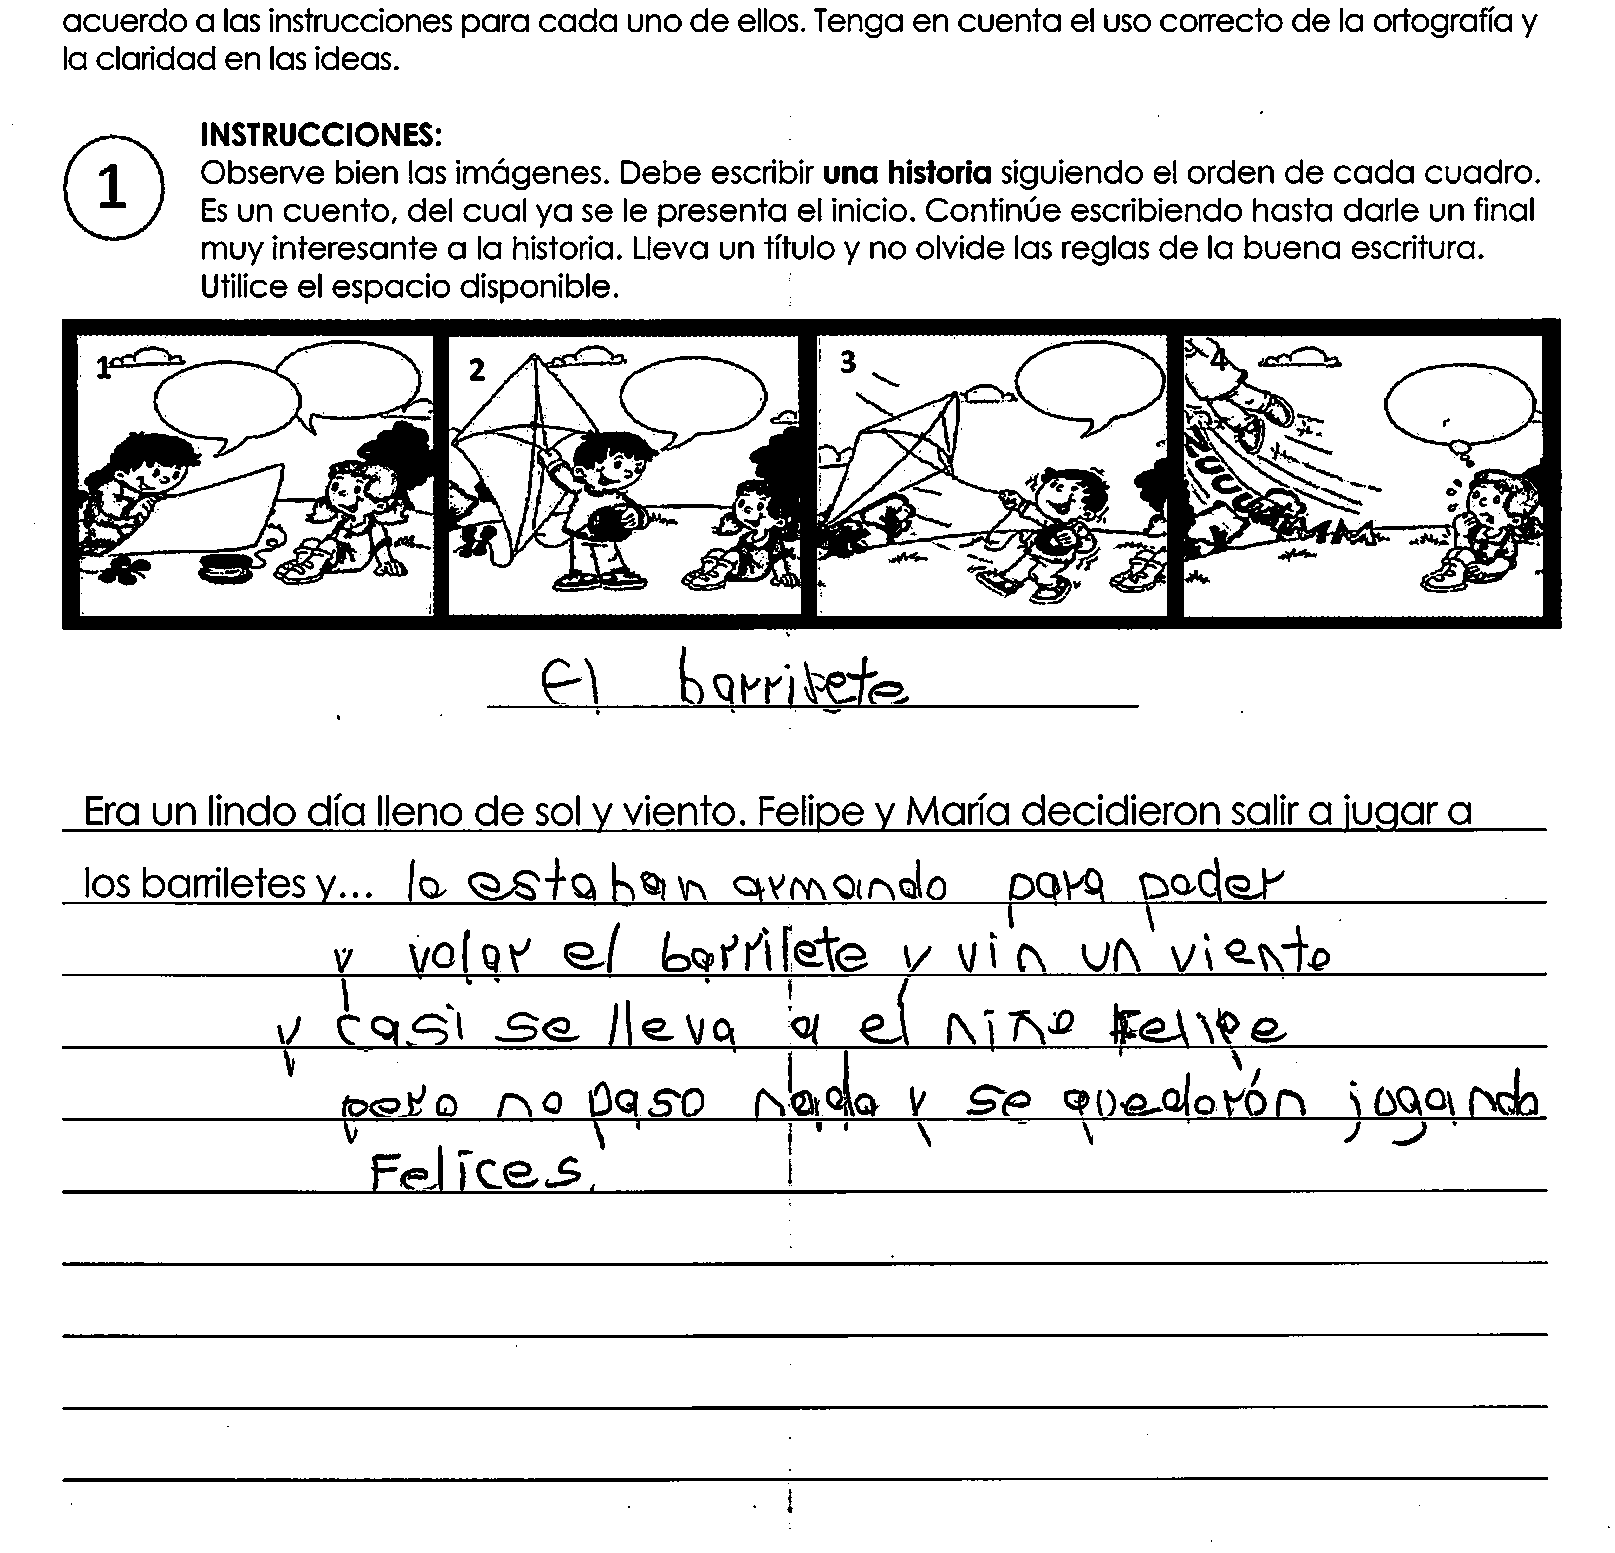 acuerdo a las instrucciones para cada uno de ellos. Tenga en cuenta el uso correcto de la ortografía y
la claridad en las ideas.
1
INSTRUCCIONES:
Observe bien las imágenes. Debe escribir una historia siguiendo el orden de cada cuadro.
Es un cuento, del cual ya se le presenta el inicio. Continúe escribiendo hasta darle un final
muy interesante a la historia. Lleva un título y no olvide las reglas de la buena escritura.
Utilice el espacio disponible.
1 2 3 4
El barrilete
Era un lindo día lleno de sol y viento. Felipe y María decidieron salir a jugar a
los barriletes y... lo estaban armando para poder
y volar el barrilete y vin un viento
y casi se lleva a el niño Felipe
pero no paso nada y se quedarón jugando
Felices.